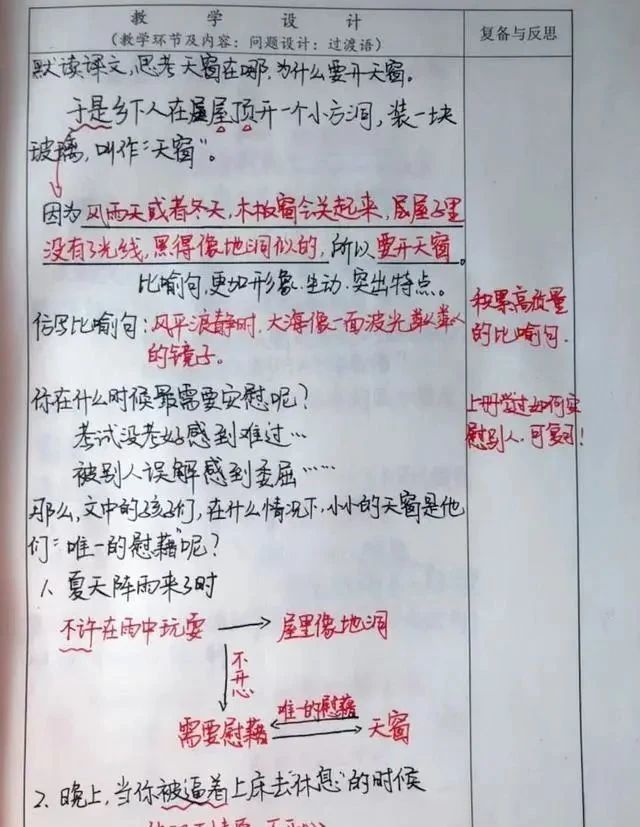 教 学 设 计
(教学环节及内容：问题设计：过渡语)
复备与反思
默读课文，思考天窗在哪，为什么要开天窗。
于是乡下人在屋顶开一个小方洞，装一块
玻璃，叫作“天窗”。
因为风雨天或者冬天，木板窗会关起来，屋子里
没有了光线，黑得像地洞似的，所以要开天窗。
比喻句，更加形象、生动、突出特点。
仿写比喻句：风平浪静时，大海像一面波光粼粼
的镜子。
积累高质量
的比喻句.
你在什么时候最需要安慰呢？
考试没考好感到难过…
被别人误解感到委屈……
上册学过如何安
慰别人，可复习！
那么，文中的孩子们，在什么情况下，小小的天窗是他
们“唯一的慰藉”呢？
1、夏天阵雨来了时
不许在雨中玩耍 → 屋里像地洞
不开心
需要慰藉 唯一的慰藉 天窗
2、晚上，当你被逼着上床去“休息”的时候